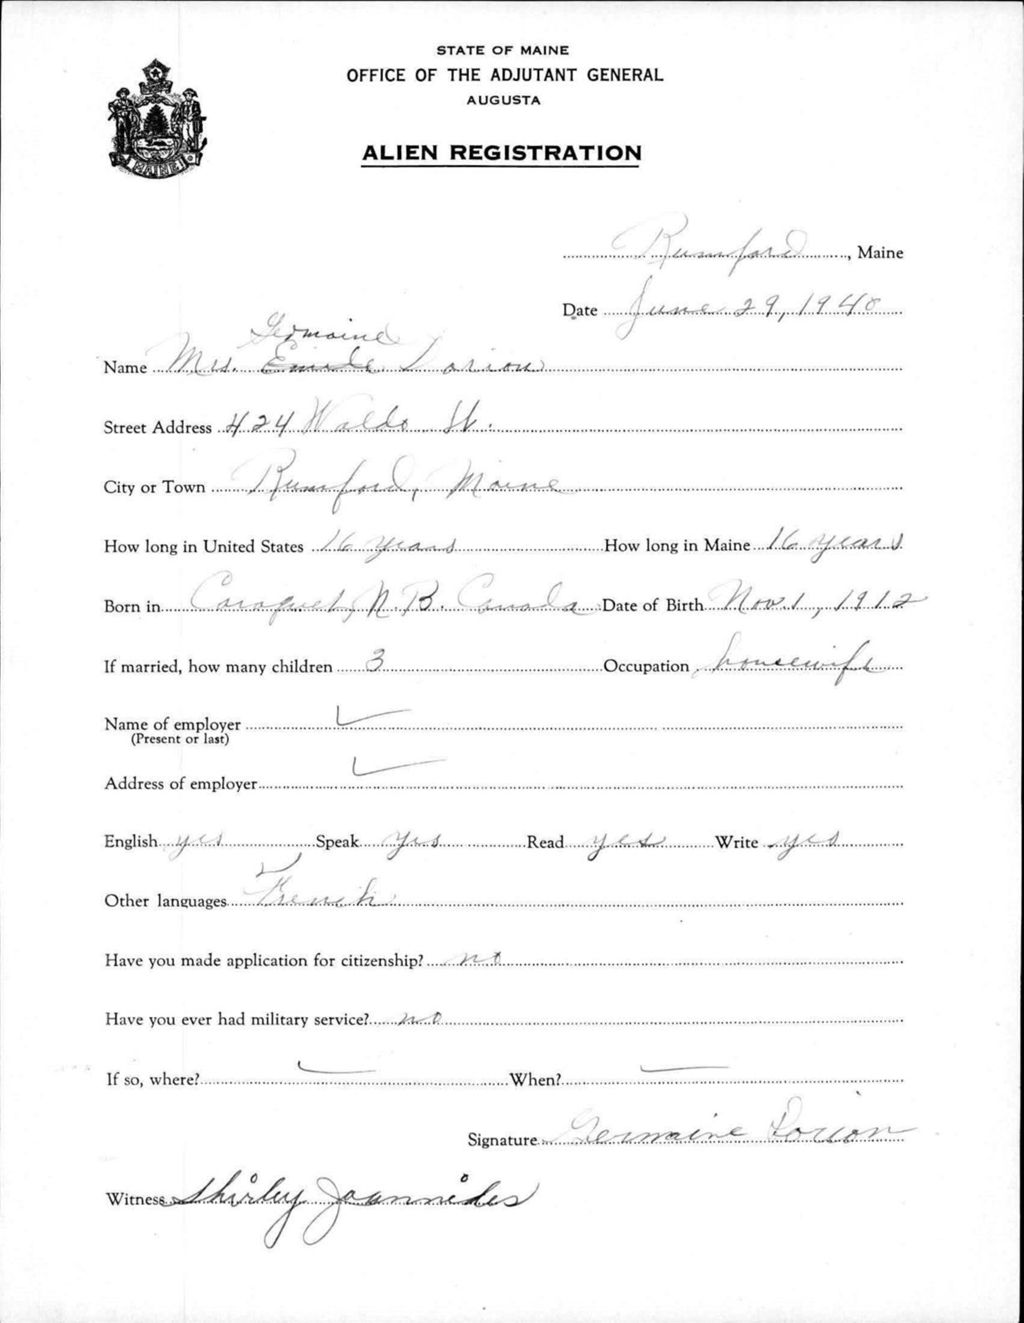 STATE OF MAINE
OFFICE OF THE ADJUTANT GENERAL
AUGUSTA
ALIEN REGISTRATION
MAINE
Rumford, Maine
Date June 29, 1940
Germaine
Name Mrs. Emile Dorion
Street Address 424 Waldo St.
City or Town Rumford, Maine
How long in United States 16 years How long in Maine 16 years
Born in Caraquet, N.B. Canada Date of Birth Nov. 1, 1912
If married, how many children 3 Occupation housewife
Name of employer
(Present or last)
Address of employer
English yes Speak yes Read yes Write yes
Other languages French
Have you made application for citizenship? no
Have you ever had military service? no
If so, where? When?
Signature Germaine Dorion
Witness Shirley Joannides